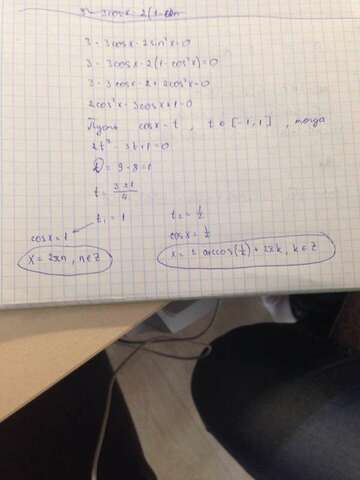 3 - 3cosx - 2(1 -
3 - 3cosx - 2sin²x = 0
3 - 3cosx - 2(1 - cos²x) = 0
3 - 3cosx - 2 + 2cos²x = 0
2cos²x - 3cosx + 1 = 0
Пусть cosx = t, t ∈ [-1; 1], тогда
2t² - 3t + 1 = 0
D = 9 - 8 = 1
t = (3 ± 1)/4
t₁ = 1 t₂ = 1/2
cosx = 1 cosx = 1/2
x = 2πn, n ∈ Z x = ± arccos(1/2) + 2πk, k ∈ Z